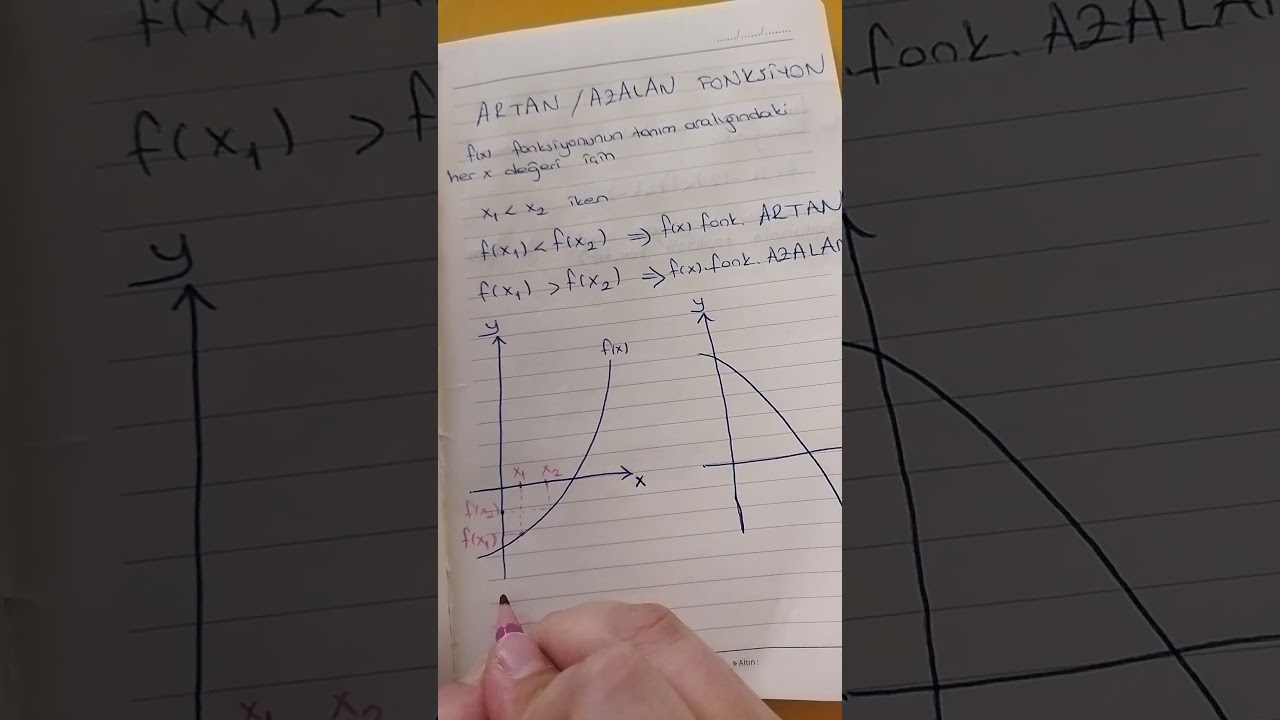 ....../....../........
ARTAN / AZALAN FONKSİYON
f(x) fonksiyonunun tanım aralığındaki
her x değeri için
x₁ < x₂ iken
f(x₁) < f(x₂) ⇒ f(x) fonk. ARTAN
f(x₁) > f(x₂) ⇒ f(x).fonk. AZALAN
y
y
f(x)
x₁ x₂
x
f(x₂)
f(x₁)
Altın :